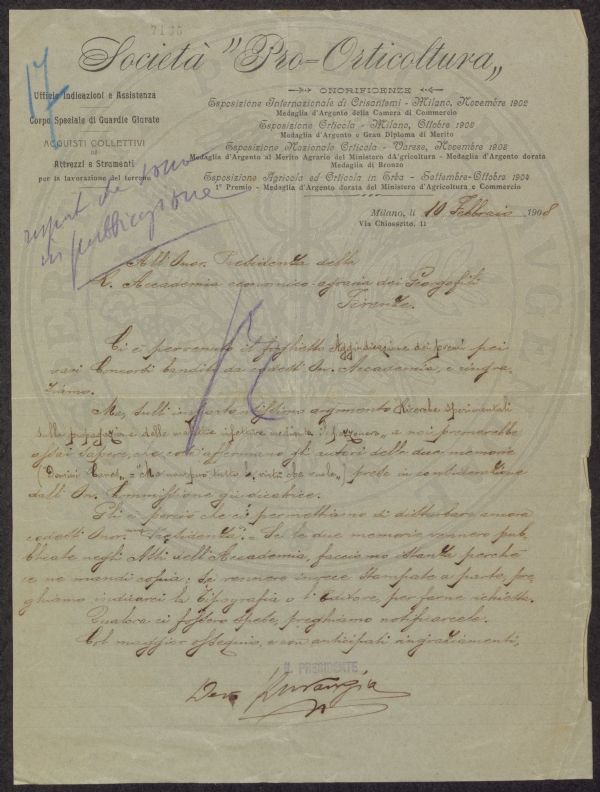 7135
17
Società "Pro=Orticoltura„
Ufficio Indicazioni e Assistenza
Corpo Speciale di Guardie Giurate
ACQUISTI COLLETTIVI
DI
Attrezzi e Strumenti
per la lavorazione del terreno
ONORIFICENZE
Esposizione Internazionale di Crisantemi - Milano, Novembre 1902
Medaglia d'Argento della Camera di Commercio
Esposizione Orticola - Milano, Ottobre 1908
Medaglia d'Argento e Gran Diploma di Merito
Esposizione Nazionale Orticola - Varese, Novembre 1903
Medaglia d'Argento al Merito Agrario del Ministero d'Agricoltura - Medaglia d'Argento dorata
Medaglia di Bronzo
Esposizione Agricola ed Orticola in Erba - Settembre-Ottobre 1904
1° Premio - Medaglia d'Argento dorata del Ministero d'Agricoltura e Commercio
che sono
in pubblicazione
Milano, li 10 Febbraio 1908
Via Chiossetto, 11
All'Onor. Presidenza della
R. Accademia economico-agraria dei Georgofili
Firenze.
Ci è pervenuto il foglietto Aggiudicazione dei premi pei
vari Concorsi banditi da codesta On. Accademia, e ringra-
ziamo.
Ma, sull'importantissimo argomento Ricerche sperimentali
sulla propagazione delle malattie infettive mediante il a noi premerebbe
assai sapere, che cosa affermano gli autori delle due memorie
prese in considerazione
dall'On. Commissione giudicatrice.
Gli è perciò che ci permettiamo di disturbare ancora
codesta Onor. Presidenza. - Se le due memorie vennero pub-
blicate negli Atti dell'Accademia, facciamo istanza perchè
ce ne mandi copia; se vennero invece stampate a parte, pre-
ghiamo indicarci la Tipografia o l'Editore, per farne richiesta.
Qualora ci fossero spese, preghiamo notificarcele.
Col maggior ossequio, e con anticipati ringraziamenti,
IL PRESIDENTE